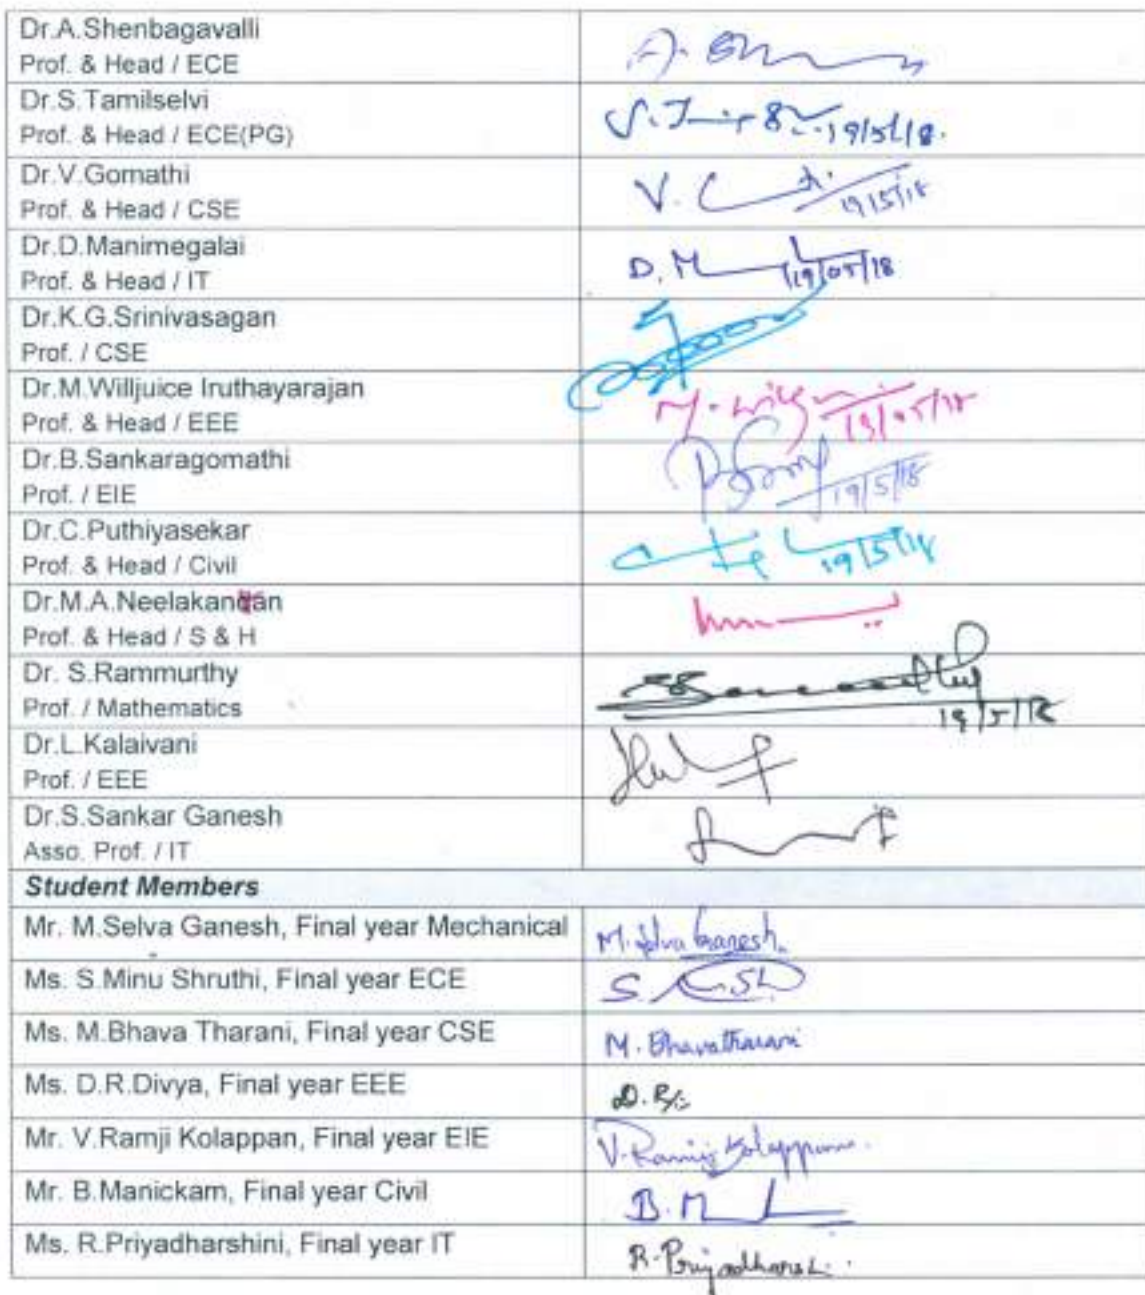 Dr.A.Shenbagavalli
Prof. & Head / ECE
Dr.S.Tamilselvi
Prof. & Head / ECE(PG)
19/5/18.
Dr.V.Gomathi
Prof. & Head / CSE
V.
19/5/18
Dr.D.Manimegalai
Prof. & Head / IT
D. M
19/05/18
Dr.K.G.Srinivasagan
Prof. / CSE
Dr.M.Willjuice Iruthayarajan
Prof. & Head / EEE
19/05/18
Dr.B.Sankaragomathi
Prof. / EIE
19/5/18
Dr.C.Puthiyasekar
Prof. & Head / Civil
19/5/18
Dr.M.A.Neelakandan
Prof. & Head / S & H
Dr. S.Rammurthy
Prof. / Mathematics
19/5/18
Dr.L.Kalaivani
Prof. / EEE
Dr.S.Sankar Ganesh
Asso. Prof. / IT
Student Members
Mr. M.Selva Ganesh, Final year Mechanical
M. Selva Ganesh.
Ms. S.Minu Shruthi, Final year ECE
Ms. M.Bhava Tharani, Final year CSE
M. Bhavatharani
Ms. D.R.Divya, Final year EEE
Mr. V.Ramji Kolappan, Final year EIE
V. Ramji Kolappan.
Mr. B.Manickam, Final year Civil
B. M
Ms. R.Priyadharshini, Final year IT